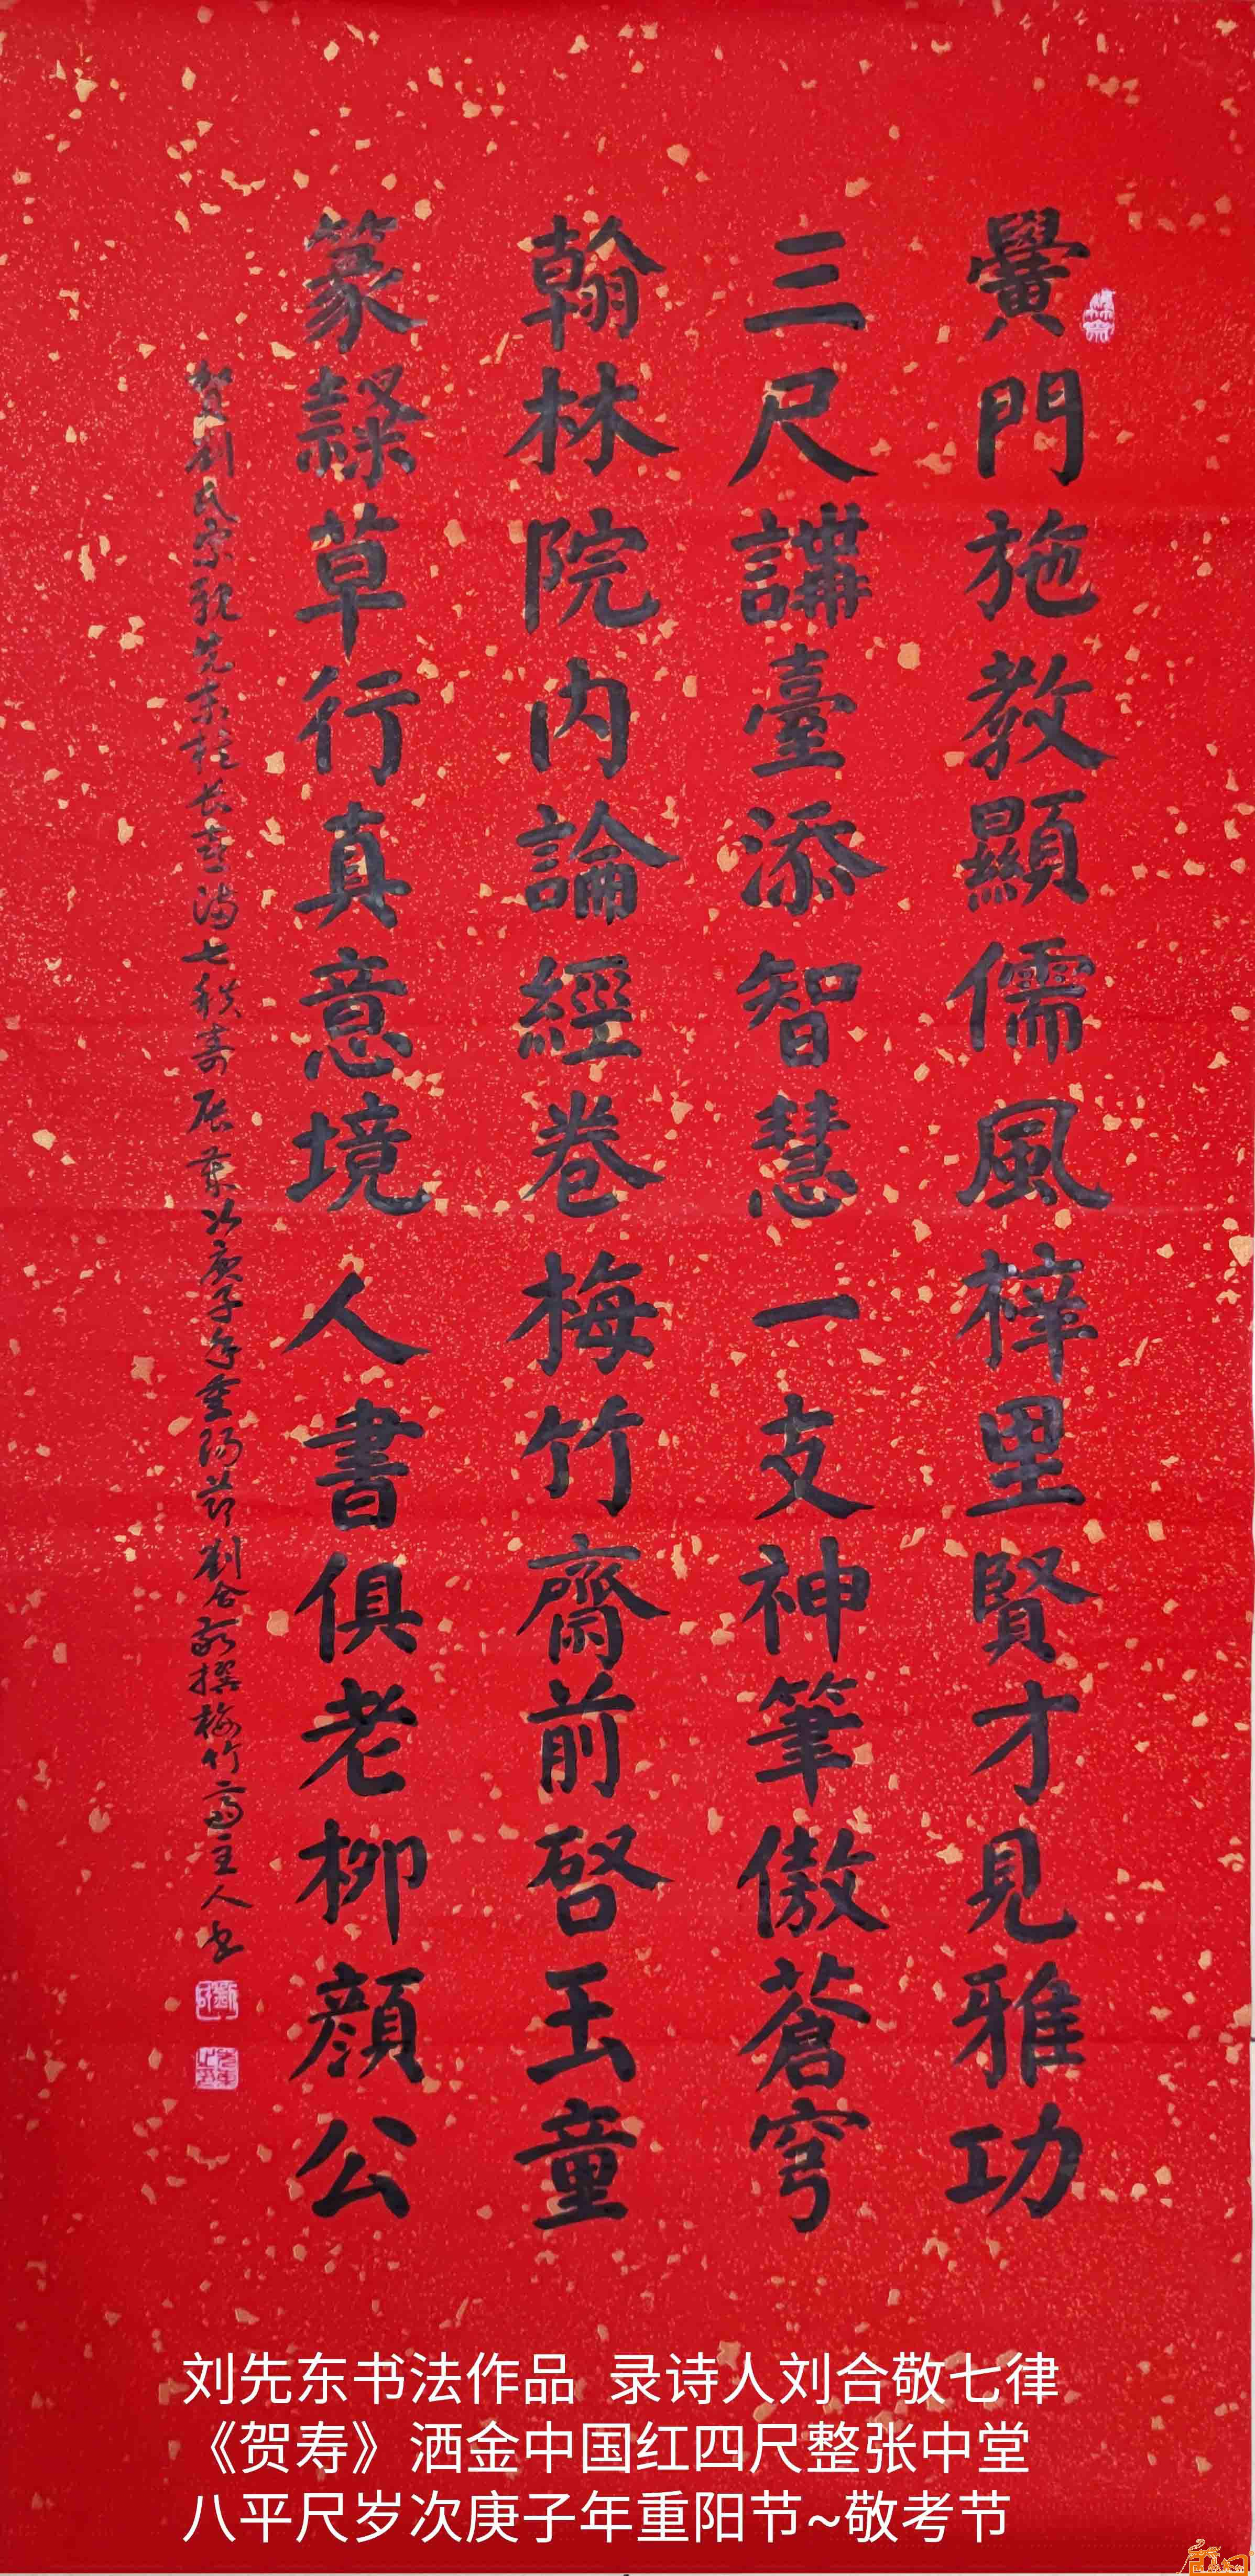 黌門施教顯儒風梓里賢才見雅功
三尺講臺添智慧一支神筆傲蒼穹
翰林院内論經卷梅竹齋前啓玉童
篆隸草行真意境人書俱老柳顔公
賀劉氏宗親先東校长喜滿七秩壽辰 以庚子年重陽节劉合敬撰梅竹齋主人书
刘先东书法作品 录诗人刘合敬七律
《贺寿》洒金中国红四尺整张中堂
八平尺岁次庚子年重阳节~敬考节